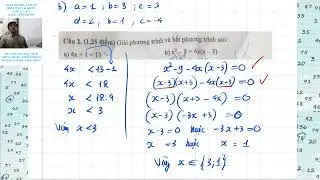 b) a = 1 ; b = 3 ; c = 3
d = 2 ; b = 1 ; c = -4
Câu 2. (1,25 điểm) Giải phương trình và bất phương trình sau:
a) 4x + 1 < 13
b) x² - 9 = 4x(x - 3)
4x < 13 - 1
4x < 12
x < 12 : 4
x < 3
Vậy x < 3
x² - 9 - 4x(x - 3) = 0
(x-3)(x+3) - 4x(x-3) = 0
(x-3)(x+3 - 4x) = 0
(x-3)(-3x + 3) = 0
x - 3 = 0 hoặc -3x + 3 = 0
x = 3 hoặc x = 1
Vậy x ∈ {3; 1}